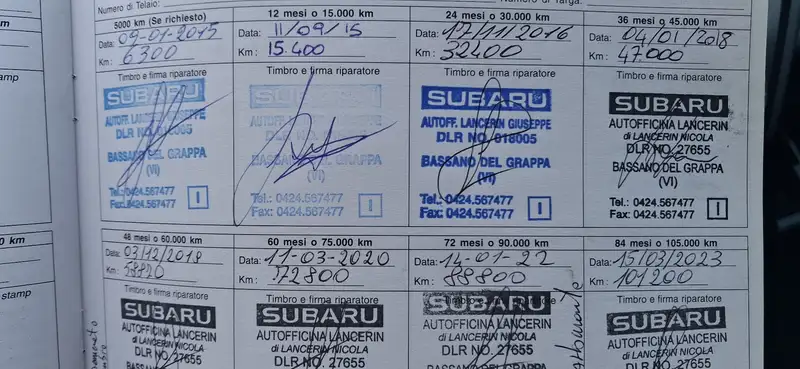 Numero di Telaio:
Numero di Targa:
5000 km (Se richiesto)
Data: 09-01-2015
Km: 6300
Timbro e firma riparatore
SUBARU
AUTOFF. LANCERIN GIUSEPPE
DLR NO. 018005
BASSANO DEL GRAPPA
(VI)
Tel.: 0424.567477
Fax: 0424.567477
I
12 mesi o 15.000 km
Data: 11/09/15
Km: 15.400
Timbro e firma riparatore
SUBARU
BASSANO DEL GRAPPA
(VI)
Tel.: 0424.567477
Fax: 0424.567477
I
24 mesi o 30.000 km
Data: 17/11/2016
Km: 32400
Timbro e firma riparatore
SUBARU
AUTOFF. LANCERIN GIUSEPPE
DLR NO. 018005
BASSANO DEL GRAPPA
(VI)
Tel.: 0424.567477
Fax: 0424.567477
I
36 mesi o 45.000 km
Data: 04/01/2018
Km: 47.000
Timbro e firma riparatore
SUBARU
AUTOFFICINA LANCERIN
di LANCERIN NICOLA
DLR NO. 27655
BASSANO DEL GRAPPA
(VI)
Tel.: 0424.567477
I
stamp
48 mesi o 60.000 km
Data: 03/12/2018
Km:
Timbro e firma riparatore
SUBARU
AUTOFFICINA LANCERIN
di LANCERIN NICOLA
DLR NO. 27655
BASSANO DEL GRAPPA
60 mesi o 75.000 km
Data: 11-03-2020
Km: 72800
Timbro e firma riparatore
SUBARU
AUTOFFICINA LANCERIN
di LANCERIN NICOLA
DLR NO. 27655
BASSANO DEL GRAPPA
72 mesi o 90.000 km
Data: 14-01-22
Km: 88800
Timbro e firma riparatore
SUBARU
AUTOFFICINA LANCERIN
di LANCERIN NICOLA
DLR NO. 27655
BASSANO DEL GRAPPA
84 mesi o 105.000 km
Data: 15/03/2023
Km: 101200
Timbro e firma riparatore
SUBARU
AUTOFFICINA LANCERIN
di LANCERIN NICOLA
DLR NO. 27655
0 km
stamp